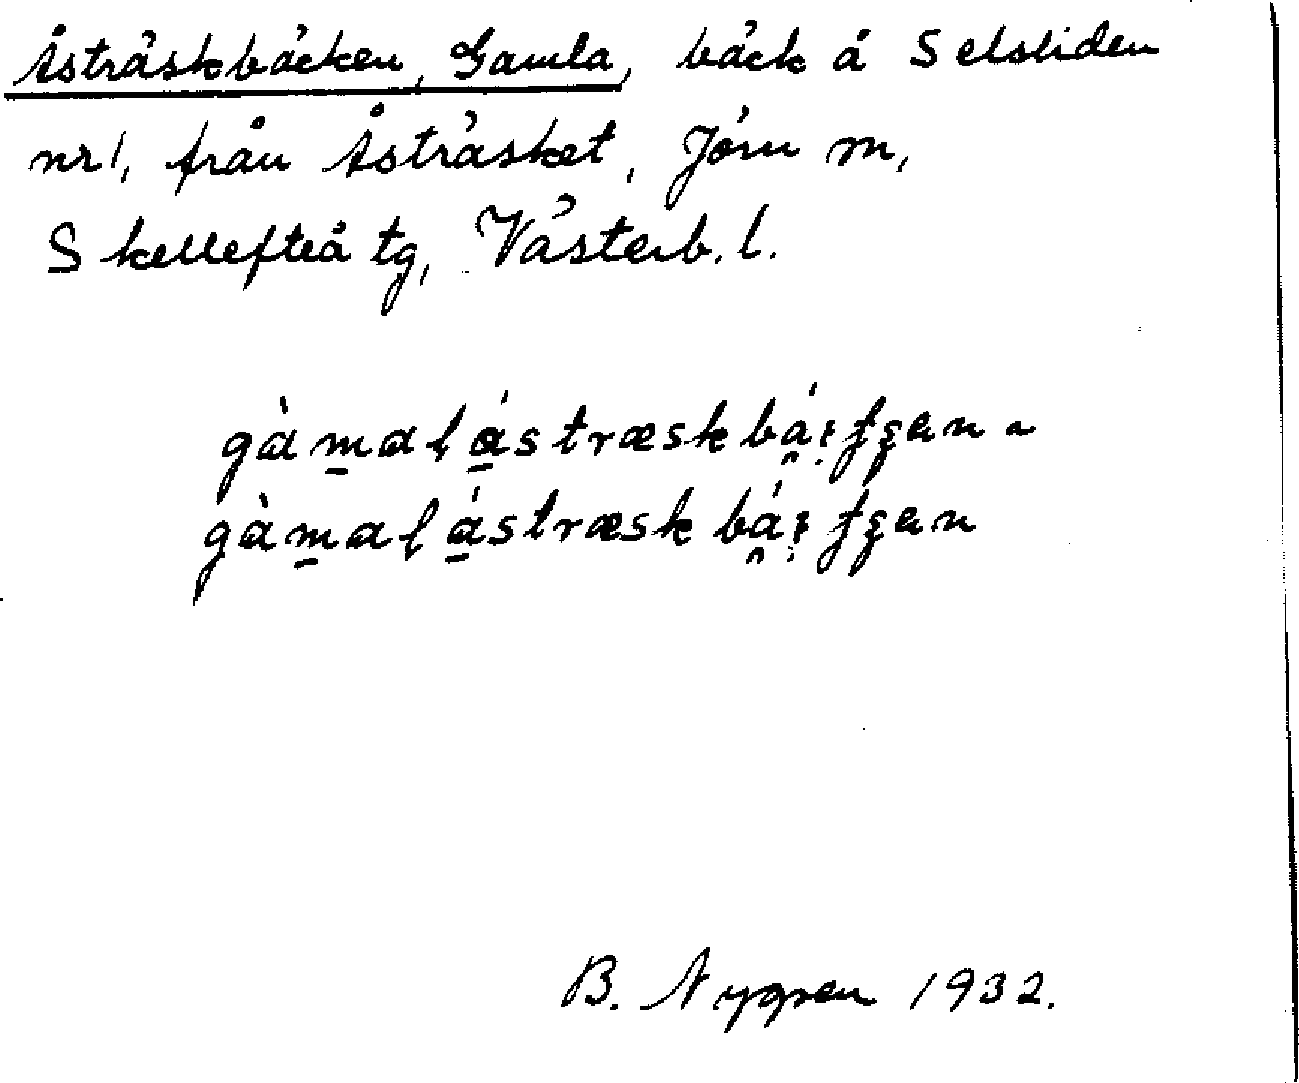 Åsträskbäcken, Gamla, bäck å Selsliden
nr 1, från Åsträsket, Jörn m,
Skellefteå tg, Västerb. l.
gàm̲alá̲stræskbá̯ıʄʒen ~
gàm̲alá̲stræskbá̯ıʄʒen
B. Nygren 1932.